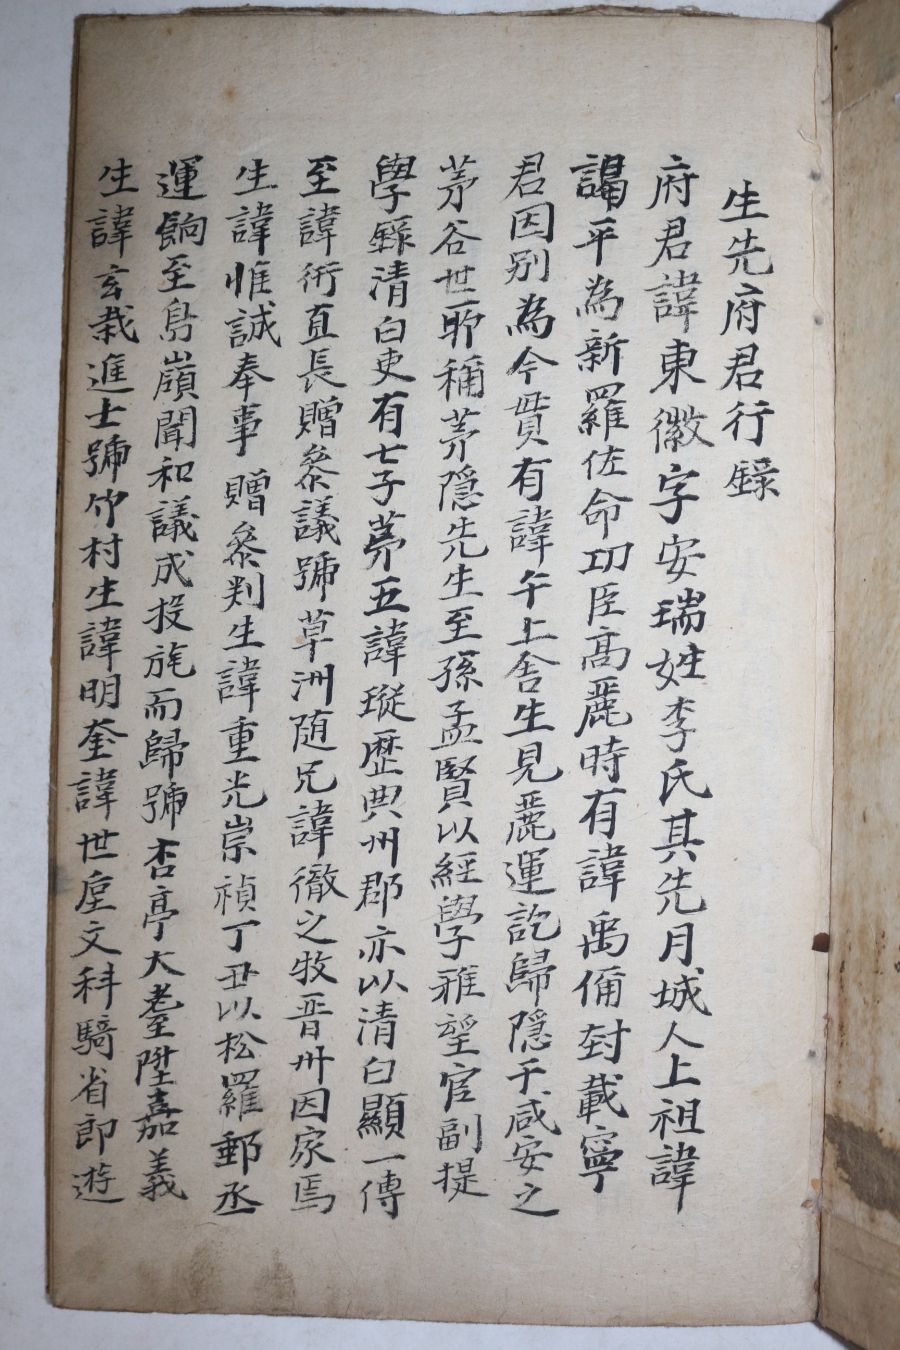 生先府君行錄
府君諱東徽字安瑞姓李氏其先月城人上祖諱
謁平為新羅佐命功臣高麗時有諱禹偁封載寧
君因别為今貫有諱午上舍生見麗運訖歸隱于咸安之
茅谷世所稱茅隱先生至孫孟賢以經學雅望官副提
學錄清白吏有七子苐五諱瑽歷典州郡亦以清白顯一傳
至諱衕直長贈叅議號草洲随兄諱徹之牧晋州因家焉
生諱惟諴奉事贈叅判生諱重光崇禎丁丑以松羅郵丞
運餉至鳥嶺聞和議成投旄而歸號杏亭大耋陞嘉義
生諱玄栽進士號竹村生諱明奎諱世垕文科騎省郎遊